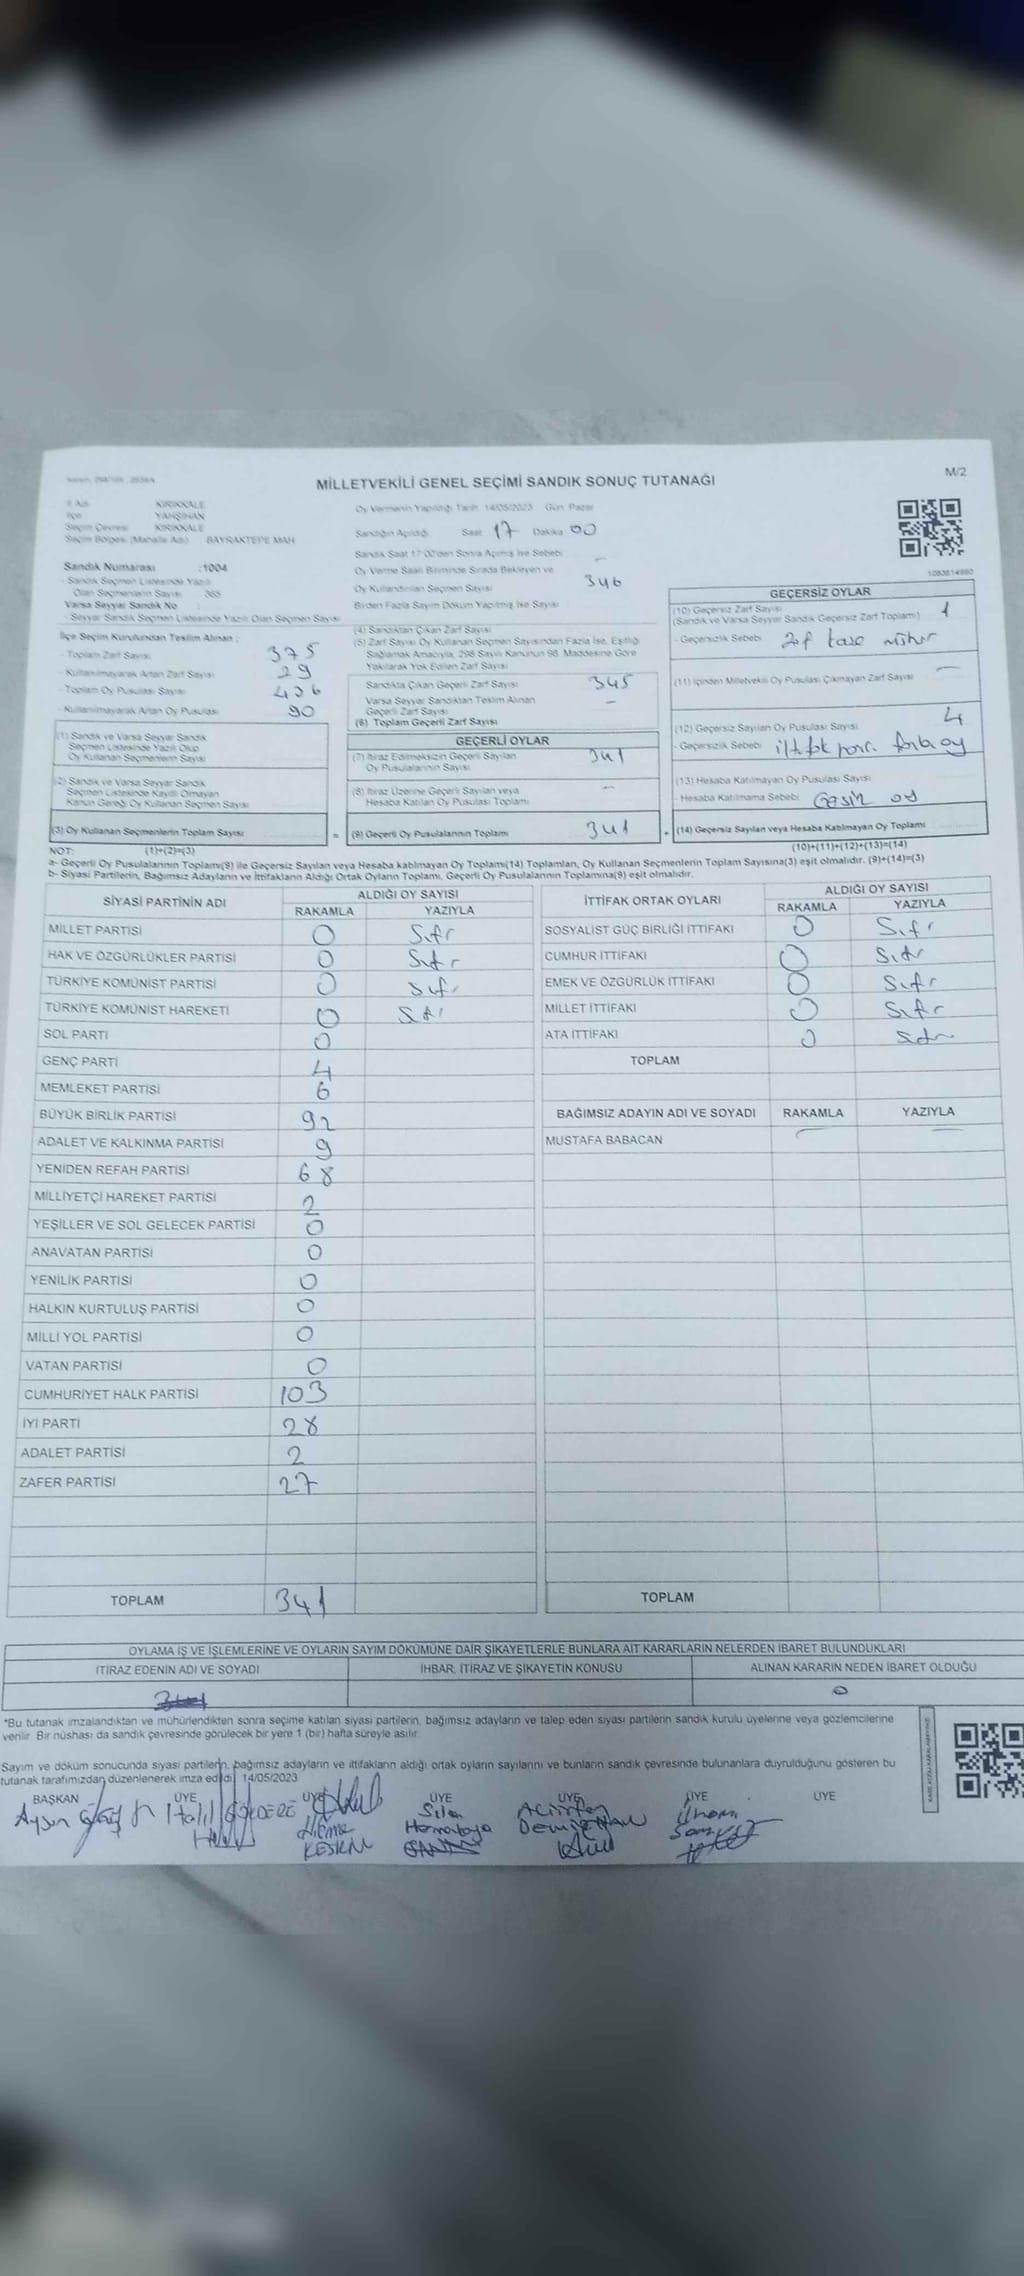 MİLLETVEKİLİ GENEL SEÇİMİ SANDIK SONUÇ TUTANAĞI
M/2
İl Adı KIRIKKALE
İlçe YAHŞİHAN
Seçim Çevresi KIRIKKALE
Seçim Bölgesi (Mahalle Adı) BAYRAKTEPE MAH
Sandık Numarası :1004
- Sandık Seçmen Listesinde Yazılı
Olan Seçmenlerin Sayısı 365
Varsa Seyyar Sandık No
Seyyar Sandık Seçmen Listesinde Yazılı Olan Seçmen Sayısı
İlçe Seçim Kurulundan Teslim Alınan :
- Toplam Zarf Sayısı 375
- Kullanılmayarak Artan Zarf Sayısı 29
- Toplam Oy Pusulası Sayısı 436
- Kullanılmayarak Artan Oy Pusulası 90
(1) Sandık ve Varsa Seyyar Sandık
Seçmen Listesinde Yazılı Olup
Oy Kullanan Seçmenlerin Sayısı
(2) Sandık ve Varsa Seyyar Sandık
Seçmen Listesinde Kayıtlı Olmayan
Kanun Gereği Oy Kullanan Seçmen Sayısı
(3) Oy Kullanan Seçmenlerin Toplam Sayısı
Oy Vermenin Yapıldığı Tarih 14/05/2023 Gün Pazar
Sandığın Açıldığı Saat 17 Dakika 00
Sandık Saat 17:00'den Sonra Açılmış İse Sebebi
Oy Verme Saati Bitiminde Sırada Bekleyen ve
Oy Kullandırılan Seçmen Sayısı 346
Birden Fazla Sayım Döküm Yapılmış İse Sayısı
(4) Sandıktan Çıkan Zarf Sayısı
(5) Zarf Sayısı Oy Kullanan Seçmen Sayısından Fazla İse, Eşitliği
Sağlamak Amacıyla, 298 Sayılı Kanunun 98. Maddesine Göre
Yakılarak Yok Edilen Zarf Sayısı
Sandıkta Çıkan Geçerli Zarf Sayısı 345
Varsa Seyyar Sandıktan Teslim Alınan
Geçerli Zarf Sayısı -
(6) Toplam Geçerli Zarf Sayısı
GEÇERLİ OYLAR
(7) İtiraz Edilmeksizin Geçerli Sayılan
Oy Pusulalarının Sayısı 341
(8) İtiraz Üzerine Geçerli Sayılan veya
Hesaba Katılan Oy Pusulası Toplamı -
= (9) Geçerli Oy Pusulalarının Toplamı 341
1083614980
GEÇERSİZ OYLAR
(10) Geçersiz Zarf Sayısı 1
(Sandık ve Varsa Seyyar Sandık Geçersiz Zarf Toplamı)
- Geçersizlik Sebebi
(11) İçinden Milletvekili Oy Pusulası Çıkmayan Zarf Sayısı -
(12) Geçersiz Sayılan Oy Pusulası Sayısı 4
- Geçersizlik Sebebi
(13) Hesaba Katılmayan Oy Pusulası Sayısı
- Hesaba Katılmama Sebebi
+ (14) Geçersiz Sayılan veya Hesaba Katılmayan Oy Toplamı
NOT: (1)+(2)=(3)
(10)+(11)+(12)+(13)=(14)
a- Geçerli Oy Pusulalarının Toplamı(9) ile Geçersiz Sayılan veya Hesaba katılmayan Oy Toplamı(14) Toplamları, Oy Kullanan Seçmenlerin Toplam Sayısına(3) eşit olmalıdır. (9)+(14)=(3)
b- Siyasi Partilerin, Bağımsız Adayların ve İttifakların Aldığı Ortak Oyların Toplamı, Geçerli Oy Pusulalarının Toplamına(9) eşit olmalıdır.
SİYASİ PARTİNİN ADI ALDIĞI OY SAYISI
RAKAMLA YAZIYLA
MİLLET PARTİSİ 0 Sıfır
HAK VE ÖZGÜRLÜKLER PARTİSİ 0 Sıfır
TÜRKİYE KOMÜNİST PARTİSİ 0 Sıfır
TÜRKİYE KOMÜNİST HAREKETİ 0 Sıfır
SOL PARTİ 0
GENÇ PARTİ 4
MEMLEKET PARTİSİ 6
BÜYÜK BİRLİK PARTİSİ 92
ADALET VE KALKINMA PARTİSİ 9
YENİDEN REFAH PARTİSİ 68
MİLLİYETÇİ HAREKET PARTİSİ 2
YEŞİLLER VE SOL GELECEK PARTİSİ 0
ANAVATAN PARTİSİ 0
YENİLİK PARTİSİ 0
HALKIN KURTULUŞ PARTİSİ 0
MİLLİ YOL PARTİSİ 0
VATAN PARTİSİ 0
CUMHURİYET HALK PARTİSİ 103
İYİ PARTİ 28
ADALET PARTİSİ 2
ZAFER PARTİSİ 27
TOPLAM 341
İTTİFAK ORTAK OYLARI ALDIĞI OY SAYISI
RAKAMLA YAZIYLA
SOSYALİST GÜÇ BİRLİĞİ İTTİFAKI 0 Sıfır
CUMHUR İTTİFAKI 0 Sıfır
EMEK VE ÖZGÜRLÜK İTTİFAKI 0 Sıfır
MİLLET İTTİFAKI 0 Sıfır
ATA İTTİFAKI 0 Sıfır
TOPLAM
BAĞIMSIZ ADAYIN ADI VE SOYADI RAKAMLA YAZIYLA
MUSTAFA BABACAN - -
TOPLAM
OYLAMA İŞ VE İŞLEMLERİNE VE OYLARIN SAYIM DÖKÜMÜNE DAİR ŞİKAYETLERLE BUNLARA AİT KARARLARIN NELERDEN İBARET BULUNDUKLARI
İTİRAZ EDENİN ADI VE SOYADI İHBAR, İTİRAZ VE ŞİKAYETİN KONUSU ALINAN KARARIN NEDEN İBARET OLDUĞU
0
*Bu tutanak imzalandıktan ve mühürlendikten sonra seçime katılan siyasi partilerin, bağımsız adayların ve talep eden siyasi partilerin sandık kurulu üyelerine veya gözlemcilerine
verilir. Bir nüshası da sandık çevresinde görülecek bir yere 1 (bir) hafta süreyle asılır.
Sayım ve döküm sonucunda siyasi partilerin, bağımsız adayların ve ittifakların aldığı ortak oyların sayılarını ve bunların sandık çevresinde bulunanlara duyrulduğunu gösteren bu
tutanak tarafımızdan düzenlenerek imza edildi. 14/05/2023
BAŞKAN ÜYE ÜYE ÜYE ÜYE ÜYE ÜYE
Halil GÖKDERE
KESKİN